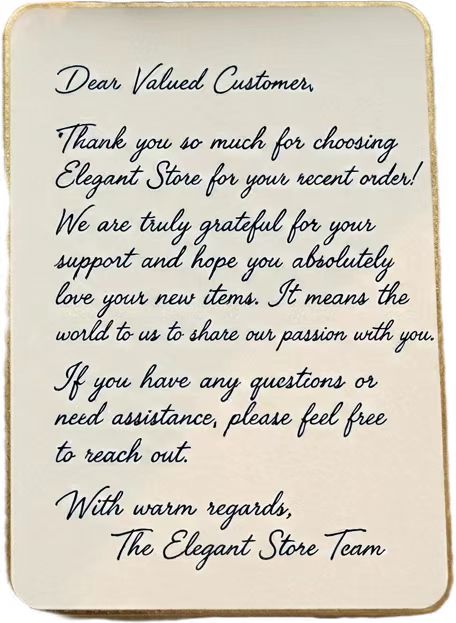 Dear Valued Customer,
Thank you so much for choosing
Elegant Store for your recent order!
We are truly grateful for your
support and hope you absolutely
love your new items. It means the
world to us to share our passion with you.
If you have any questions or
need assistance, please feel free
to reach out.
With warm regards,
The Elegant Store Team